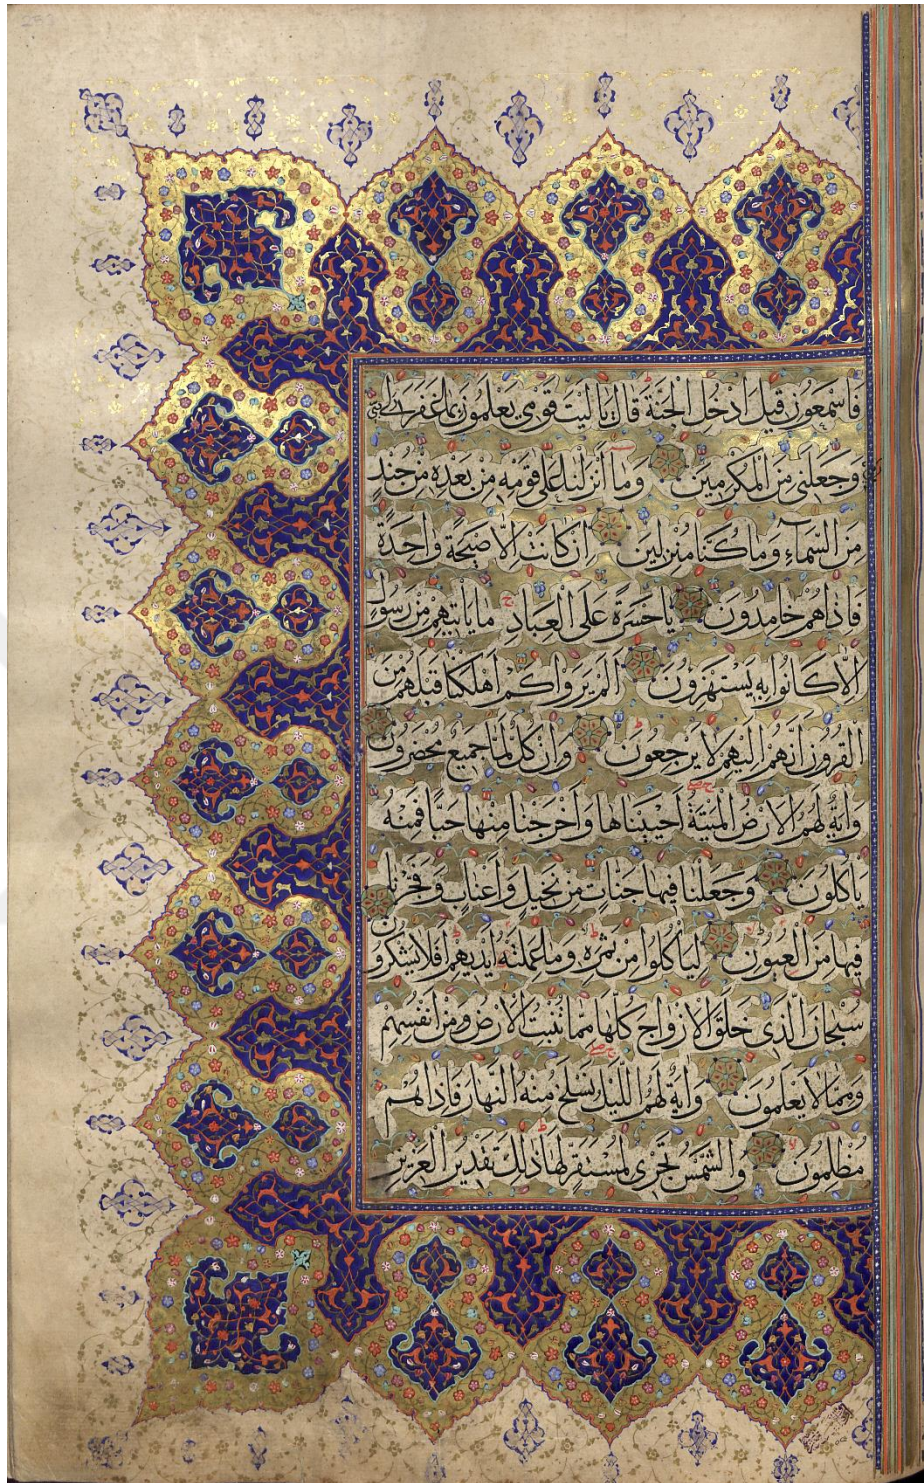 فَاسْمَعُونِ قِيلَ ادْخُلِ الْجَنَّةَ قَالَ يَا لَيْتَ قَوْمِي يَعْلَمُونَ بِمَا غَفَرَ لِي رَبِّي
وَجَعَلَنِي مِنَ الْمُكْرَمِينَ وَمَا أَنْزَلْنَا عَلَى قَوْمِهِ مِنْ بَعْدِهِ مِنْ جُنْدٍ
مِنَ السَّمَاءِ وَمَا كُنَّا مُنْزِلِينَ إِنْ كَانَتْ إِلَّا صَيْحَةً وَاحِدَةً
فَإِذَا هُمْ خَامِدُونَ يَا حَسْرَةً عَلَى الْعِبَادِ مَا يَأْتِيهِمْ مِنْ رَسُولٍ
إِلَّا كَانُوا بِهِ يَسْتَهْزِؤُنَ أَلَمْ يَرَوْا كَمْ أَهْلَكْنَا قَبْلَهُمْ مِنَ
الْقُرُونِ أَنَّهُمْ إِلَيْهِمْ لَا يَرْجِعُونَ وَإِنْ كُلٌّ لَمَّا جَمِيعٌ لَدَيْنَا مُحْضَرُونَ
وَآيَةٌ لَهُمُ الْأَرْضُ الْمَيْتَةُ أَحْيَيْنَاهَا وَأَخْرَجْنَا مِنْهَا حَبًّا فَمِنْهُ
يَأْكُلُونَ وَجَعَلْنَا فِيهَا جَنَّاتٍ مِنْ نَخِيلٍ وَأَعْنَابٍ وَفَجَّرْنَا
فِيهَا مِنَ الْعُيُونِ لِيَأْكُلُوا مِنْ ثَمَرِهِ وَمَا عَمِلَتْهُ أَيْدِيهِمْ أَفَلَا يَشْكُرُونَ
سُبْحَانَ الَّذِي خَلَقَ الْأَزْوَاجَ كُلَّهَا مِمَّا تُنْبِتُ الْأَرْضُ وَمِنْ أَنْفُسِهِمْ
وَمِمَّا لَا يَعْلَمُونَ وَآيَةٌ لَهُمُ اللَّيْلُ نَسْلَخُ مِنْهُ النَّهَارَ فَإِذَا هُمْ
مُظْلِمُونَ وَالشَّمْسُ تَجْرِي لِمُسْتَقَرٍّ لَهَا ذَلِكَ تَقْدِيرُ الْعَزِيزِ